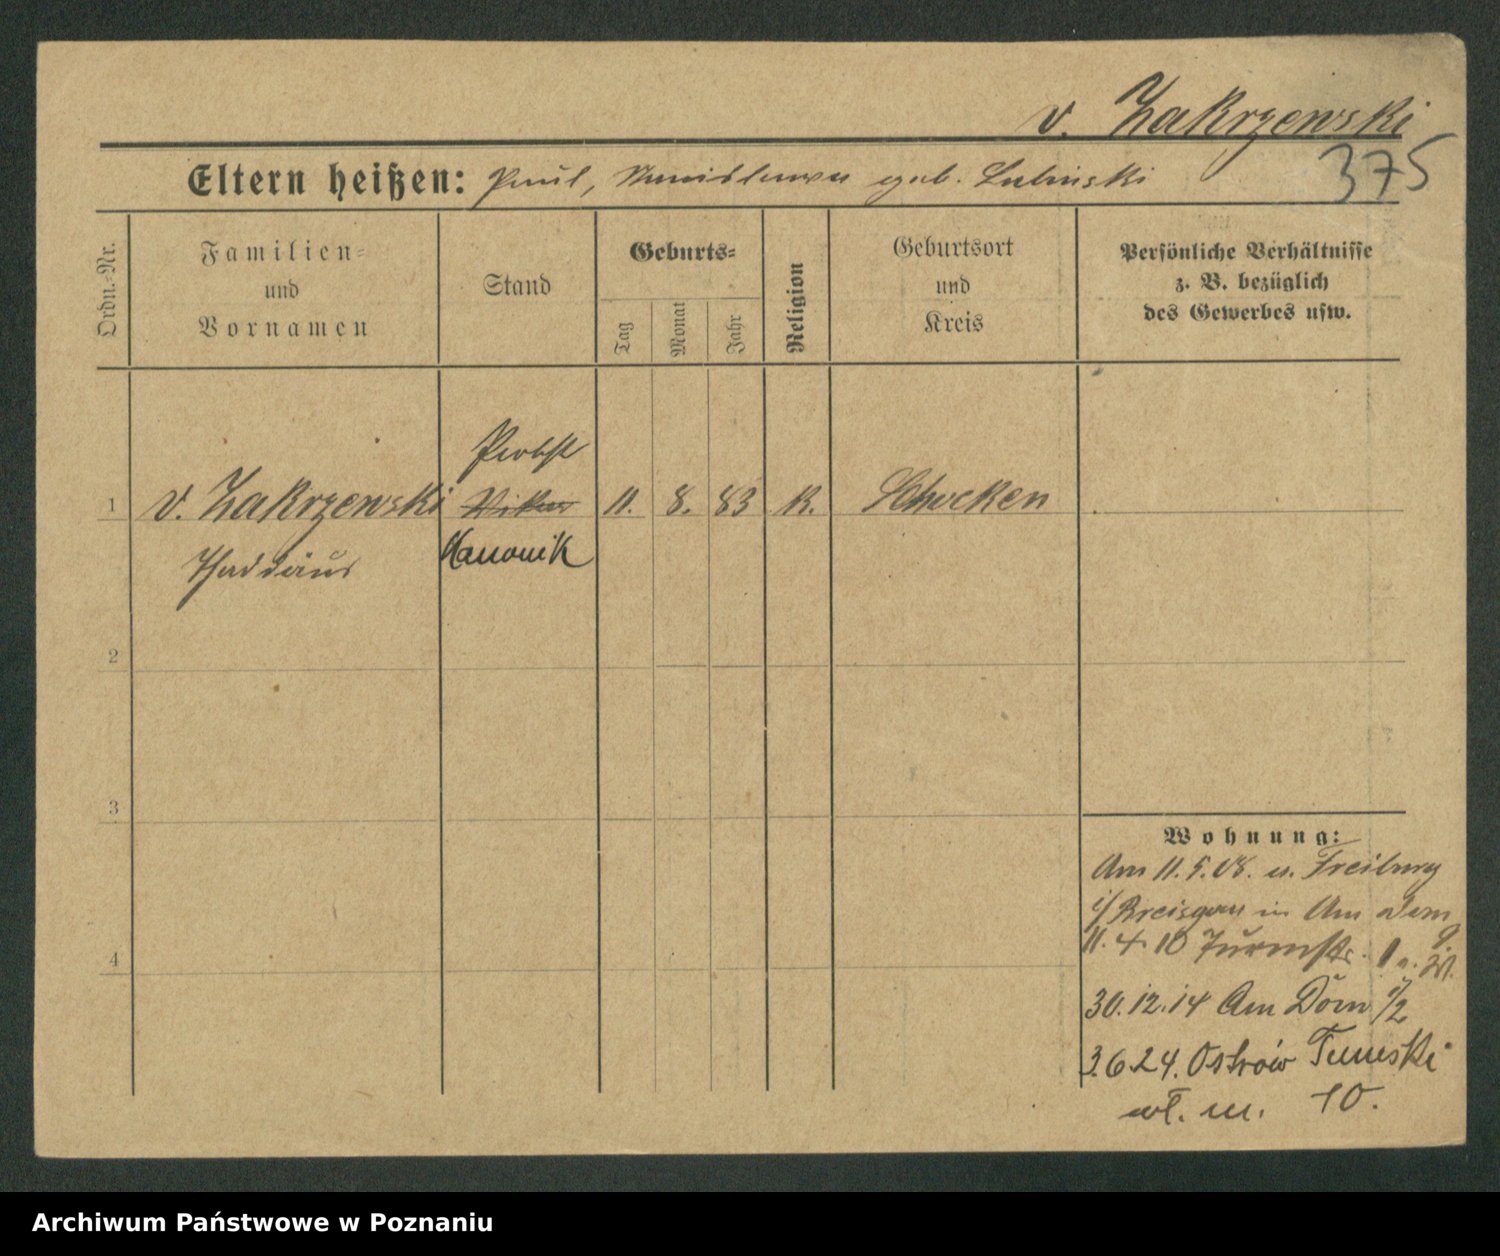 v. Zakrzewski
375
Eltern heißen: Paul, geb. Lubinski
Ordn.-Nr.
Familien-
und
Vornamen
Stand
Geburts-
Tag
Monat
Jahr
Religion
Geburtsort
und
Kreis
Persönliche Verhältnisse
z. B. bezüglich
des Gewerbes usw.
Probst
1 v. Zakrzewski Vikar 11. 8. 83 K. Schocken
Thaddäus Kanonik
2
3
4
Wohnung:
Am 11. 5. 08. v. Freiburg
i/Breisgau in Am Dom
11. 4 10 Turmstr.
30. 12. 14 Am Dom 1/2
3.6.24. Ostrów Tumski
wł. m. 10.
Archiwum Państwowe w Poznaniu